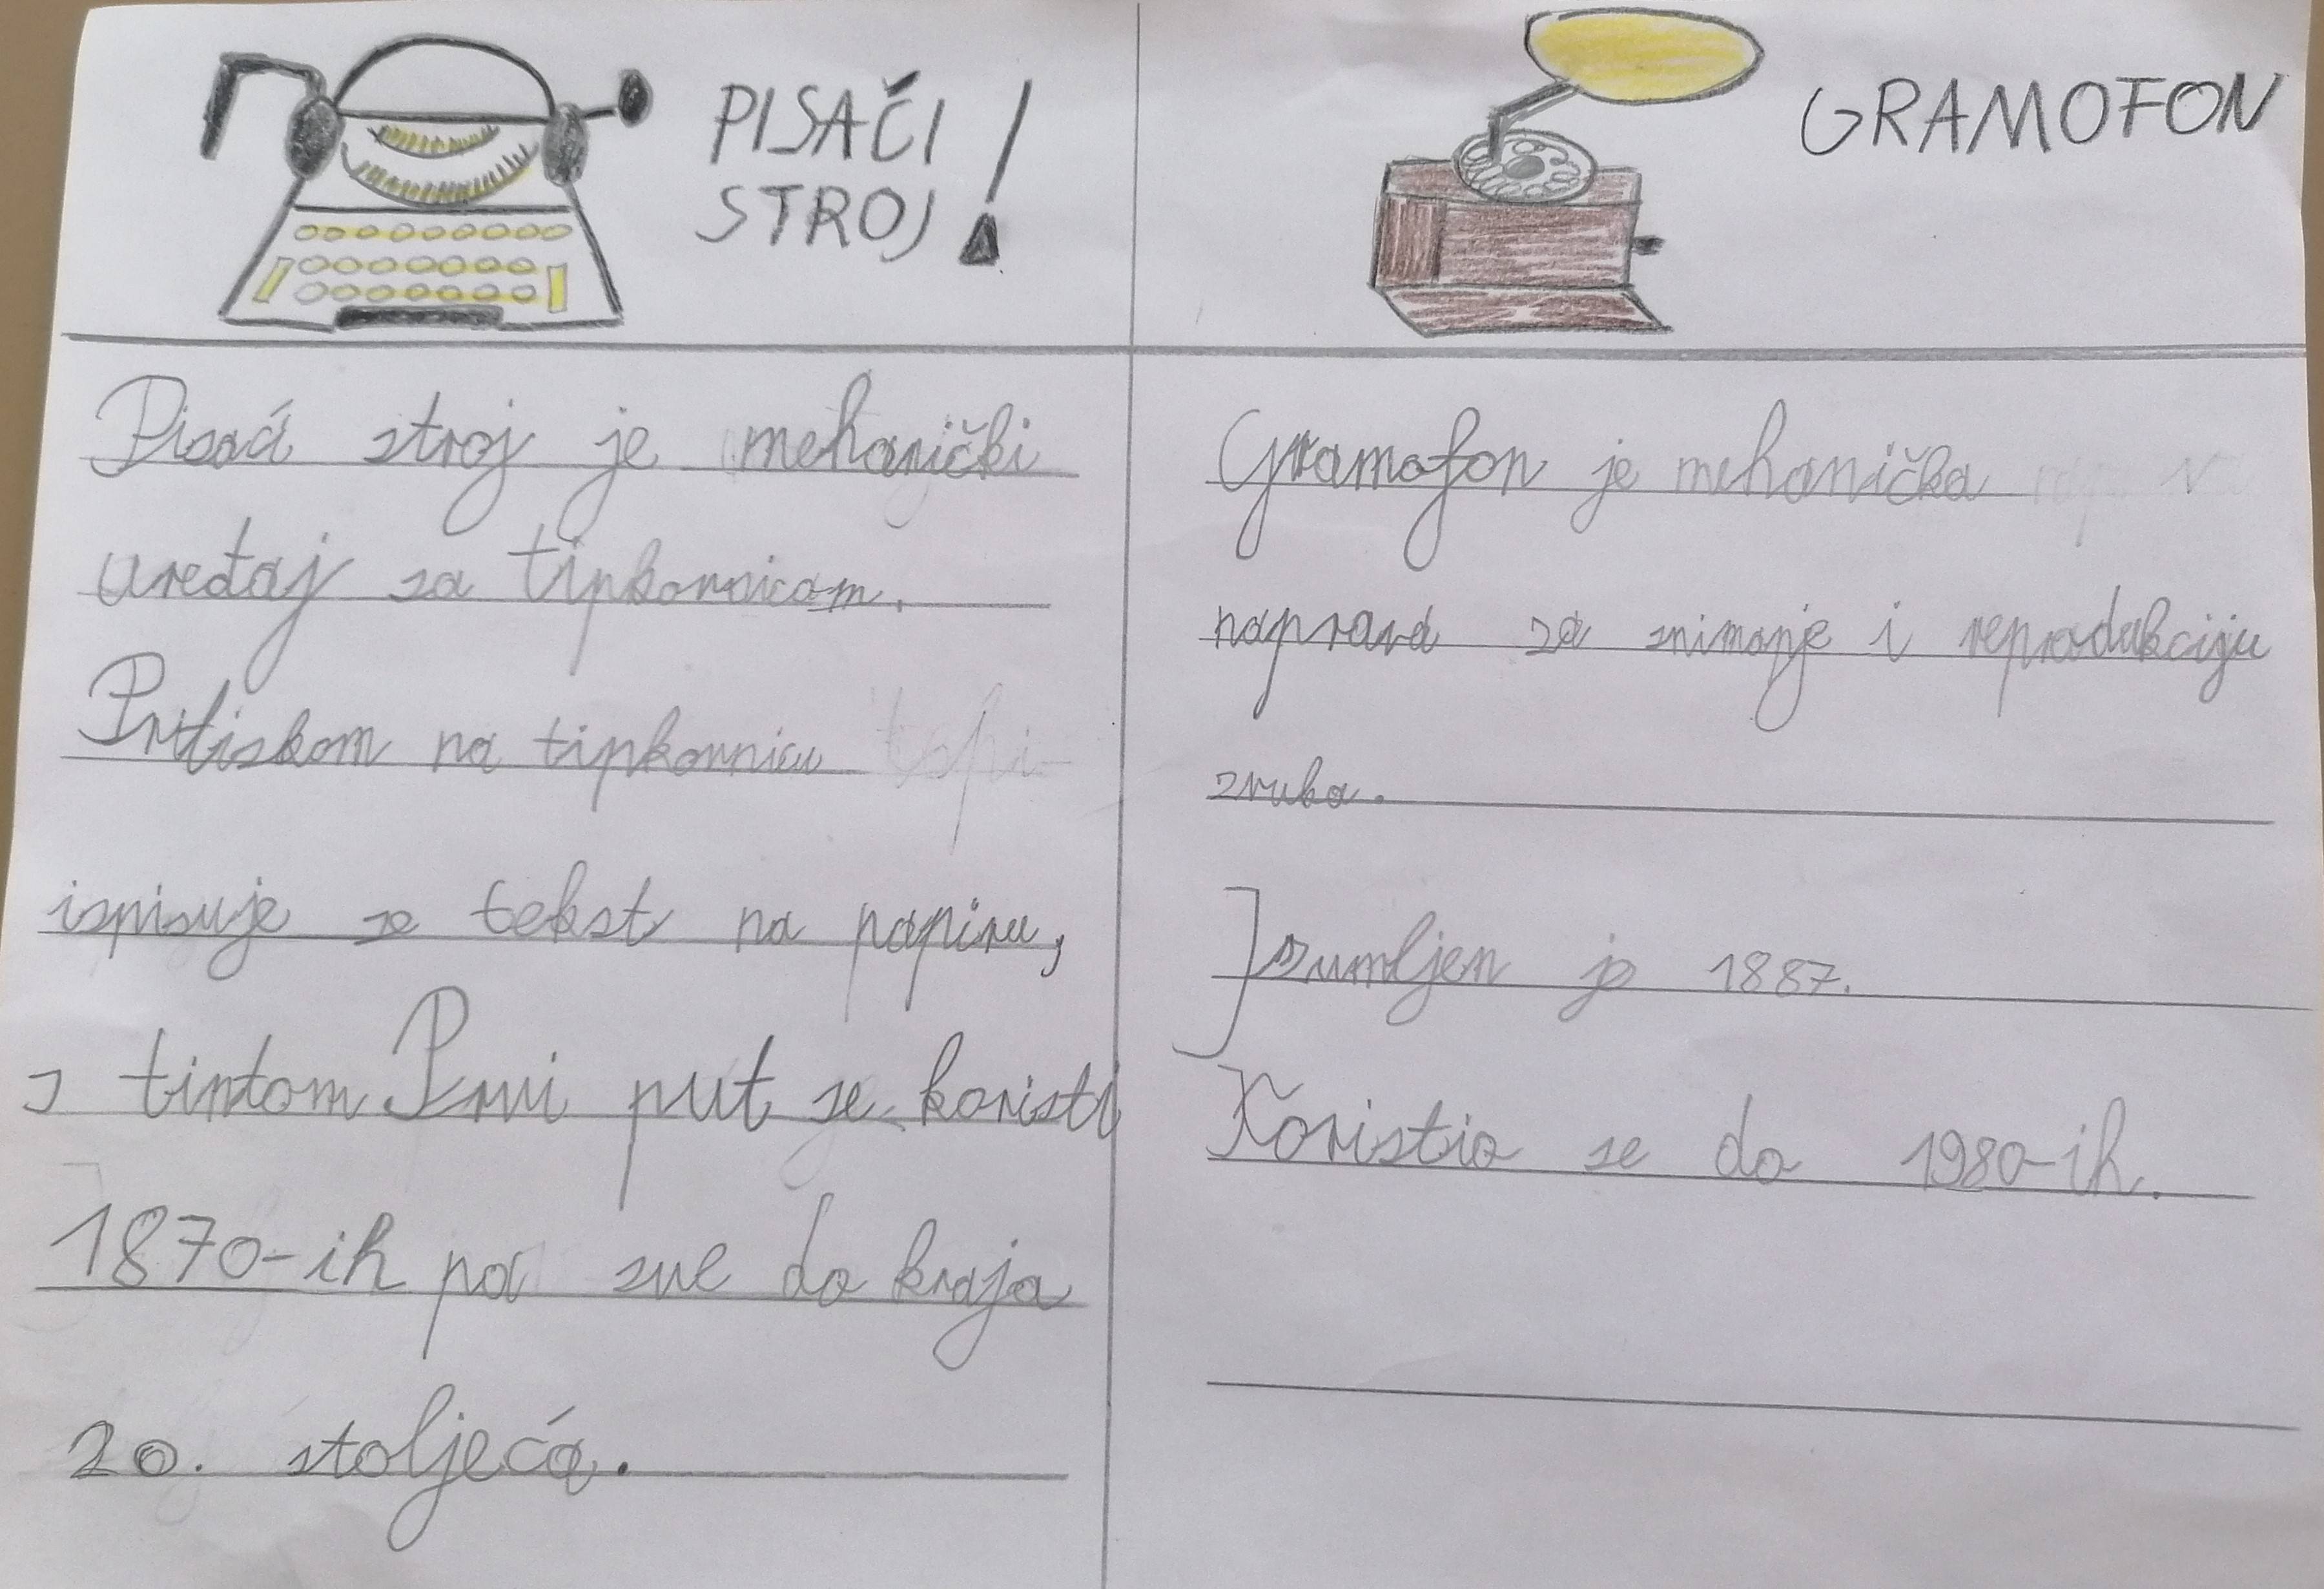 PISAČI
STROJ!
Pisaći stroj je mehanički
uređaj sa tipkovnicom.
Pritiskom na tipkovnicu
ispisuje se tekst na papiru,
s tintom. Prvi put se koristi
1870-ih pa sve do kraja
20. stoljeća.
GRAMOFON
Gramofon je mehanička
naprava za snimanje i reprodukciju
zvuka.
Izumljen je 1887.
Koristio se do 1980-ih.